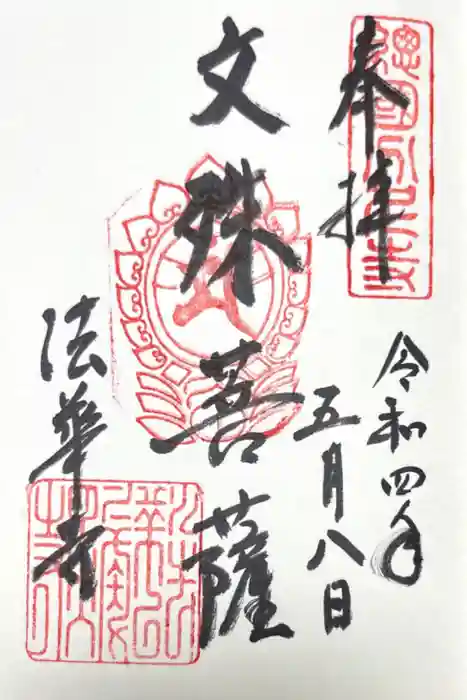 奉拝
令和四年
五月八日
文殊菩薩
法華寺